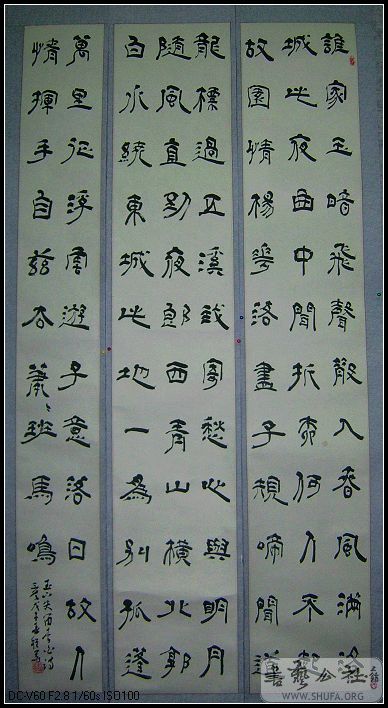 誰家玉暗飛聲散入春風滿洛
城此夜曲中聞折柳何人不起
故園情楊花落盡子規啼聞道
龍標過五溪我寄愁心與明月
隨風直到夜郎西青山橫北郭
白水繞東城此地一為別孤蓬
萬里征浮雲遊子意落日故人
情揮手自茲去蕭〻班馬鳴
書藝公社
WWW.SHUFA.ORG
DC-V60 F2.8 1/60s ISO100